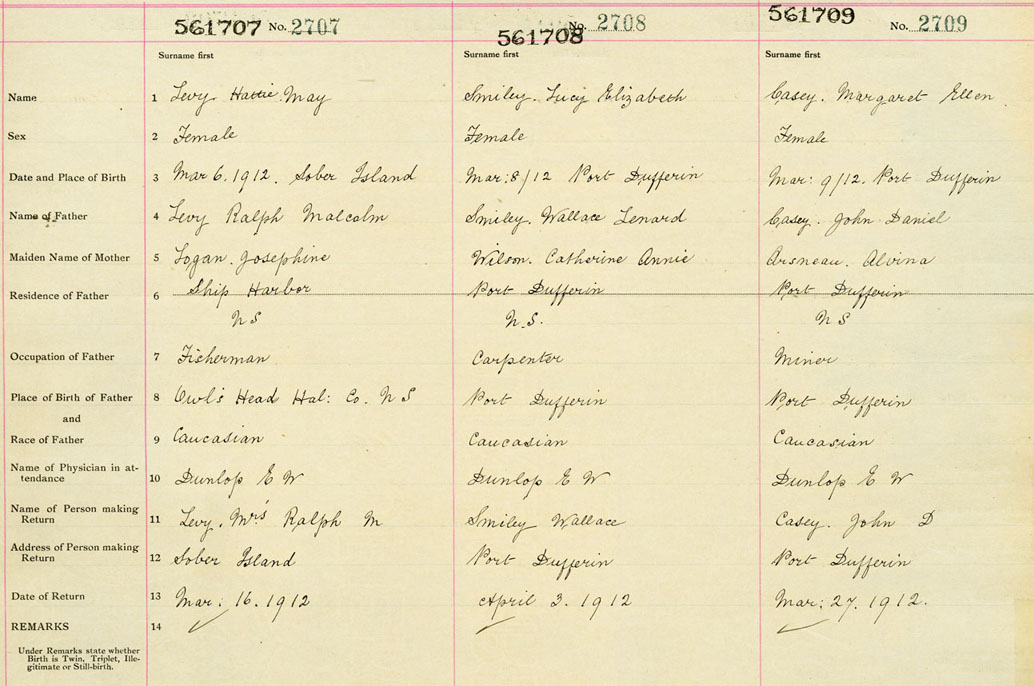 561707 No. 2707 561708 No. 2708 561709 No. 2709
Surname first Surname first Surname first
Name 1 Levy Hattie May Smiley. Lucy Elizabeth Casey. Margaret Ellen
Sex 2 Female Female Female
Date and Place of Birth 3 Mar 6. 1912. Sober Island Mar: 8/12 Port Dufferin Mar: 9/12. Port Dufferin
Name of Father 4 Levy Ralph Malcolm Smiley. Wallace Lenard Casey. John Daniel
Maiden Name of Mother 5 Logan. Josephine Wilson. Catherine Annie Arsneau. Alvina
Residence of Father 6 Ship Harbor Port Dufferin Port Dufferin
N S N.S. N S
Occupation of Father 7 Fisherman Carpenter Miner
Place of Birth of Father 8 Owl's Head Hal: Co. N S Port Dufferin Port Dufferin
and
Race of Father 9 Caucasian Caucasian Caucasian
Name of Physician in at-
tendance 10 Dunlop E W Dunlop E W Dunlop E W
Name of Person making
Return 11 Levy, Mrs Ralph M Smiley Wallace Casey. John D
Address of Person making
Return 12 Sober Island Port Dufferin Port Dufferin
Date of Return 13 Mar: 16. 1912 April 3. 1912 Mar: 27. 1912.
REMARKS 14
Under Remarks state whether
Birth is Twin, Triplet, Ille-
gitimate or Still-birth.